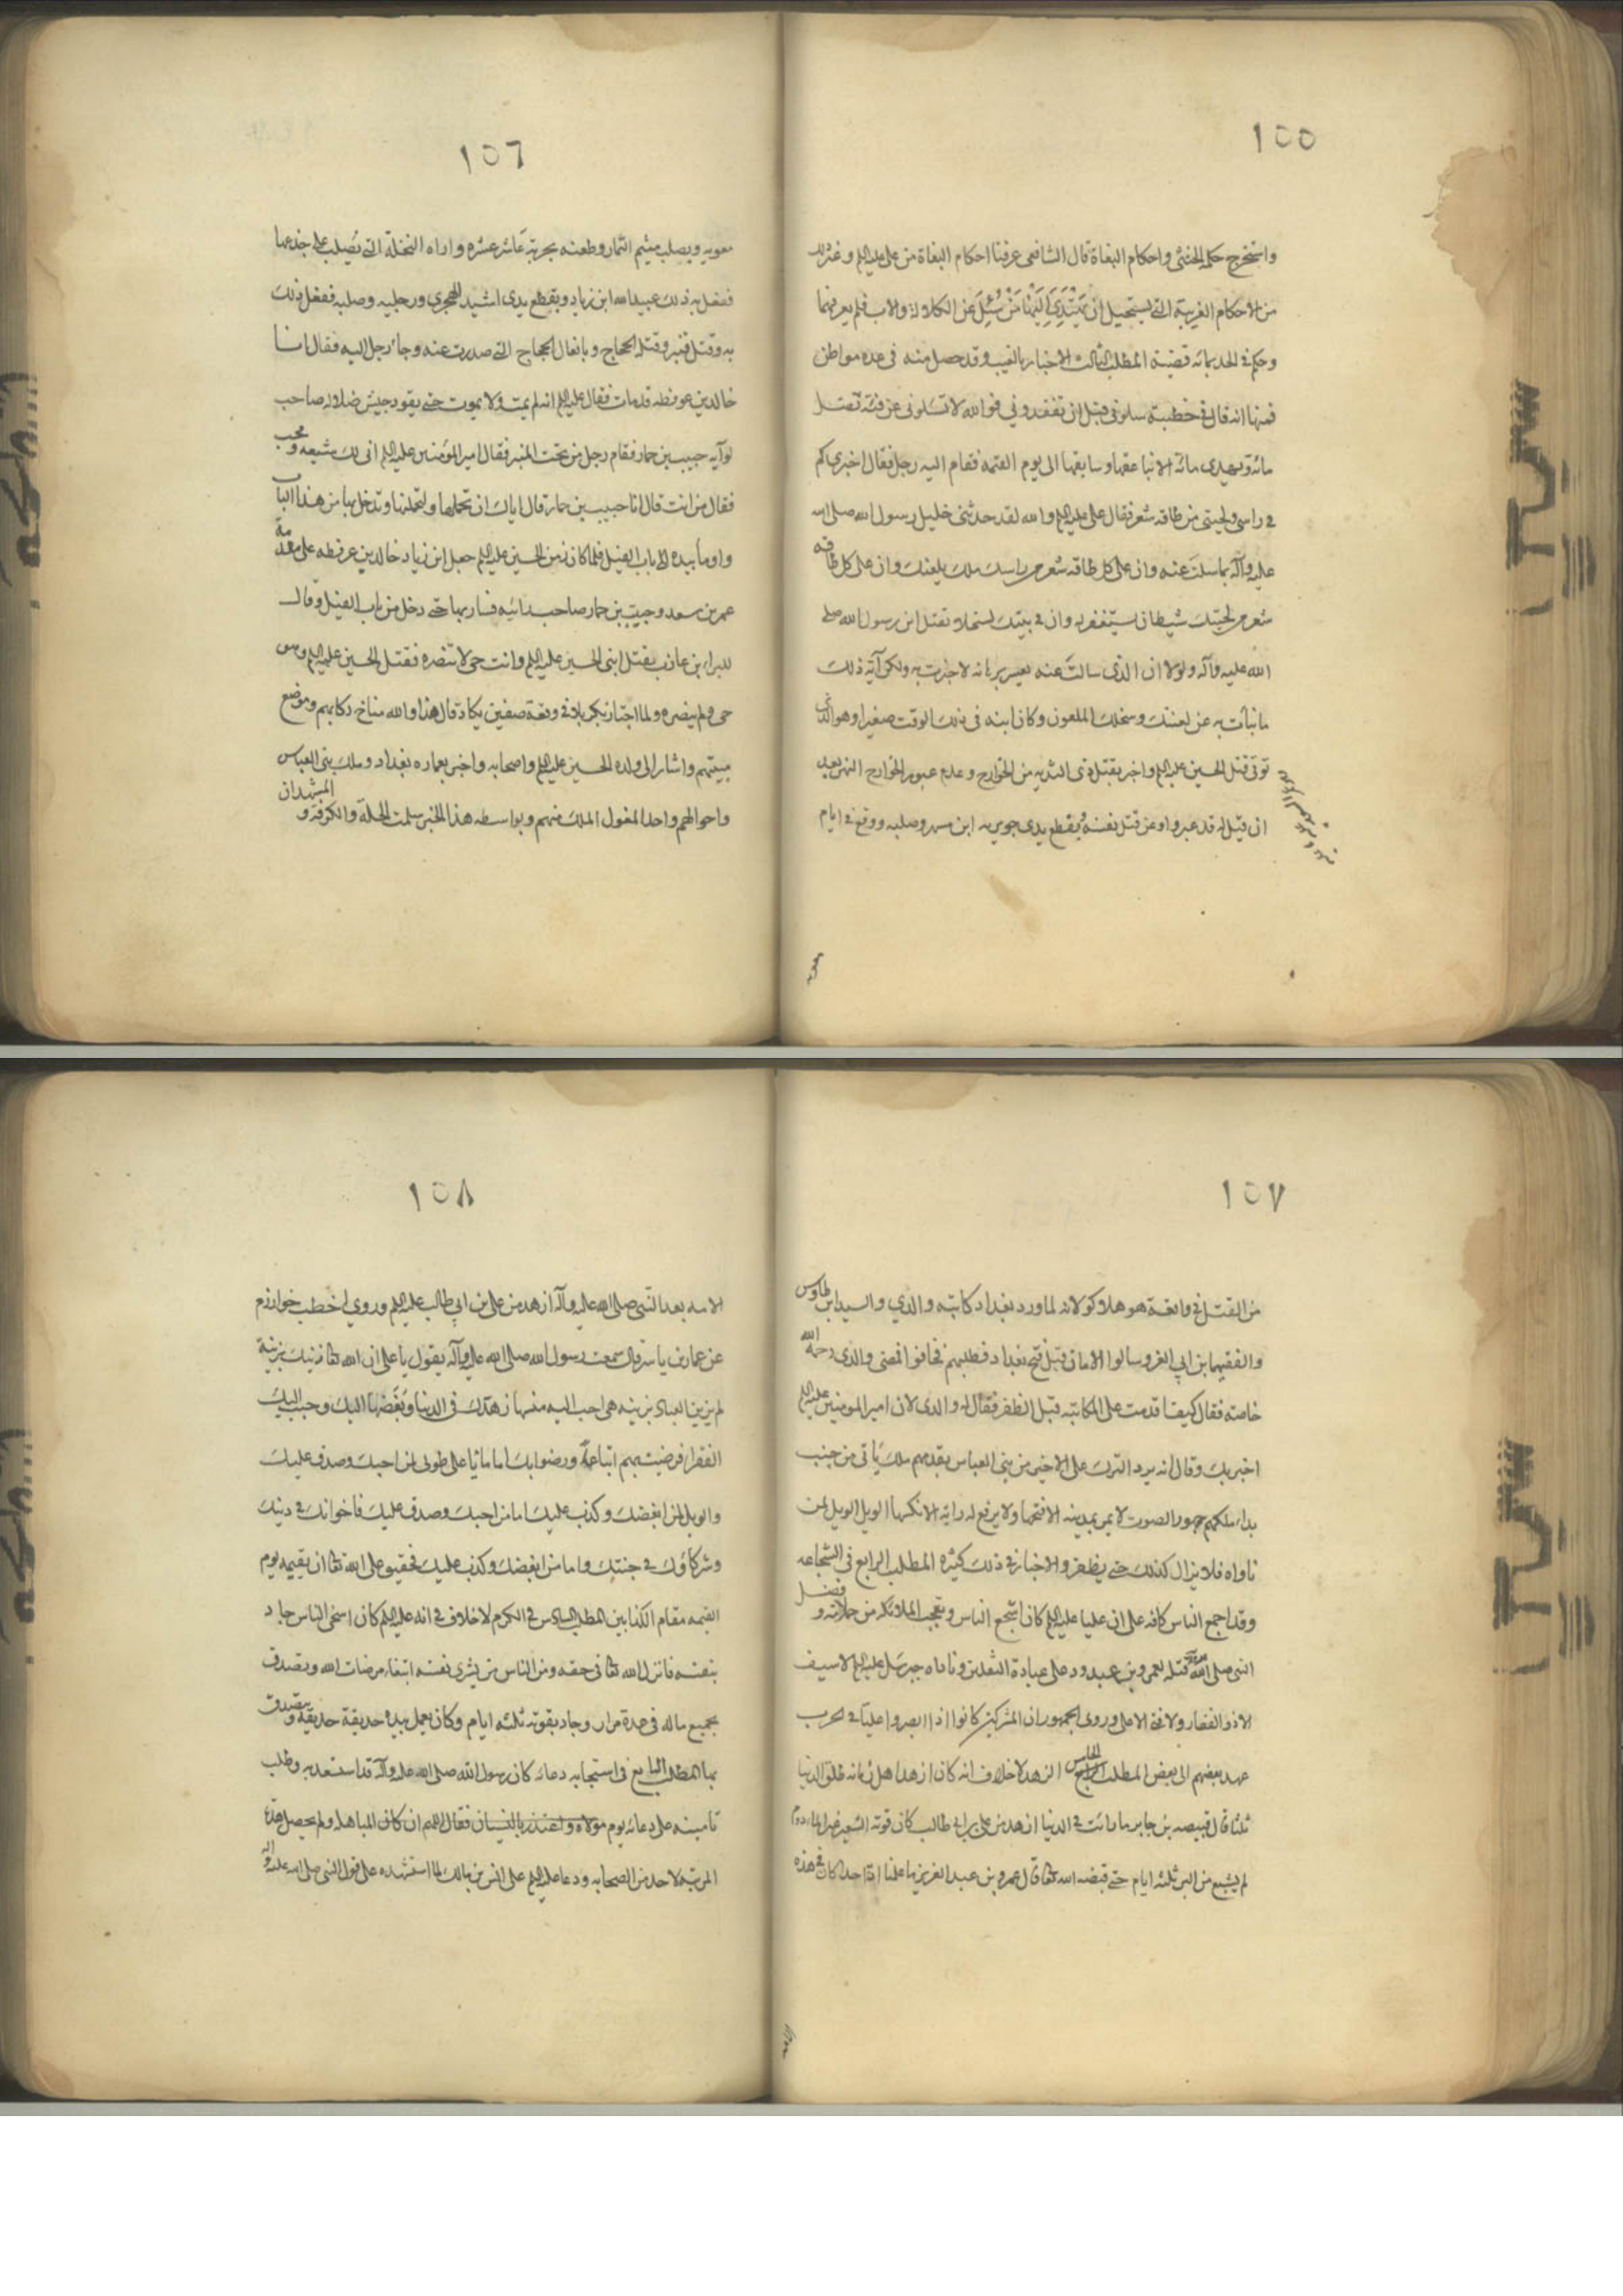 ١٥٥
واستخرج حكم الخنثى واحكام البغاة قال الشافعى عرفنا احكام البغاة من على عليه السلم وغير ذلك
من الاحكام الغريبة التى يستحيل ان يهتدى اليها من سئل عن الكلالة والاب فلم يعرفهما
وحكم فى الجد بمائه قضية المطلب الثالث الاخبار بالغيب وقد حصل منه فى عده مواطن
فمنها انه قال فى خطبته سلونى قبل ان تفقدونى فوالله لا تسلونى عن فئة تضل
مائة وتهدى مائة الا نباتكم بناعقها وسايقها الى يوم القيمه فقام اليه رجل فقال اخبرنى كم
فى راسى ولحيتى من طاقه شعر فقال على عليه السلم والله لقد حدثنى خليل رسول الله صلى الله
عليه وآله بما سالت عنه وان على كل طاقه شعر من راسك ملك يلعنك وان على كل طاقه
شعر من لحيتك شيطان يستفزك وان فى بيتك لسخلا يقتل ابن رسول الله صلى
الله عليه وآله ولولا ان الذى سالت عنه يعسر برهانه لاخبرت به ولكن آية ذلك
ما نبأت به عن لعنتك وسخلك الملعون وكان ابنه فى ذلك الوقت صغيرا وهو الذى
تولى قتل الحسين عليه السلم واخبر بقتل ذى الثديه من الخوارج وعدم عبور الخوارج النهر بعد
ان قيل له قد عبروا وعن قتل نفسه وبقطع يدى جويريه ابن مسهر وصلبه ووقع فى ايام
١٥٦
معويه وبصلب ميثم التمار وطعنه بحربة عاشر عشره واراه النخلة التى يصلب على جذعها
ففعل به ذلك عبيد الله ابن زياد وبقطع يدى رشيد الهجرى ورجليه وصلبه ففعل ذلك
به وقتل قنبر وقتله الحجاج وبافعال الحجاج التى صدرت عنه وجاء رجل اليه فقال ان
خالد بن عرفطه قد مات فقال عليه السلم انه لم يمت ولا يموت حتى يقود جيش ضلاله صاحب
لوآيه حبيب بن حمار فقام رجل من تحت المنبر فقال امير المؤمنين عليه السلم انى لك شيعه ومحب
فقال من انت قال انا حبيب بن حمار قال اياك ان تحملها ولتحملنها وتدخل بها من هذا الباب
واومأ بيده الى باب الفيل فلما كان زمن الحسين عليه السلم جعل ابن زياد خالد بن عرفطه على مقدمة
عمر بن سعد وحبيب بن حمار صاحب رائيه فسار بها حتى دخل من باب الفيل وقال
للبراء بن عازب يقتل ابنى الحسين عليه السلم وانت حى لا تنصره فقتل الحسين عليه السلم وهو
حى ولم ينصره ولما اجتاز بكربلا فى وقعة صفين بكا وقال هذا والله مناخ ركابهم وموضع
ميتتهم واشار الى ولده الحسين عليه السلم واصحابه واخبر بعماره بغداد وملك بنى العباس
واحوالهم واخذ المغول الملك منهم وبواسطه هذا الخبر سلمت الحلة والكوفة و المشهدان
١٥٧
من القتل فى واقعة هوهلاكو لانه لما ورد بغداد كاتبه والدي والسيد ابن طاوس
والفقيه ابن ابى الغر وسالوا الامان قبل فتح بغداد فطلبهم فخافوا فمضى والدى رحمه الله
خاصته فقال كيف اقدمت على المكاتبه قبل الظفر فقال له والدى لان امير المومنين عليه السلم
اخبر بك وقال انه يرد الترك على الاخير من بنى العباس يقدمهم ملك ياتى من حيث
بداء ملكهم جهور الصوت لا يمر بمدينه الا فتحها ولا يرفع له رايه الا نكسها الويل الويل لمن
ناواه فلا يزال كذلك حتى يظفر والاخبار فى ذلك كثيره المطلب الرابع فى الشجاعه
وقد اجمع الناس كافه على ان عليا عليه السلم كان اشجع الناس وتعجب الملائكه من حملاته و فضل
النبى صلى الله عليه وآله قتله لعمرو بن عبدود على عبادة الثقلين وناداه جبرئيل عليه السلم لا سيف
الا ذو الفقار ولا فتى الا على وروى الجمهور ان المشركين كانوا اذا ابصروا عليا فى الحرب
عهد بعضهم الى بعض المطلب الخامس الزهد لا خلاف انه كان ازهد اهل زمانه طلق الدنيا
ثلثا قال قبيصه بن جابر ما رائت فى الدنيا ازهد من على بن ابى طالب كان قوته الشعير غير المادوم
لم يشبع من البر ثلثه ايام حتى قبضه الله تعالى قال عمرو بن عبد العزيز ما علمنا ان احدا كان فى هذه
١٥٨
الامه بعد النبى صلى الله عليه وآله ازهد من على بن ابى طالب عليه السلم وروى اخطب خوارزم
عن عمار بن ياسر قال سمعت رسول الله صلى الله عليه وآله يقول يا على ان الله تعالى زينك بزينة
لم يزين العباد بزينه هى احب اليه منها زهدك فى الدنيا وبغضها اليك وحبب اليك
الفقرا فرضيت بهم اتباعا ورضوا بك اماما يا على طوبى لمن احبك وصدق عليك
والويل لمن ابغضك وكذب عليك اما من احبك وصدق عليك فاخوانك فى دينك
وشركاؤك فى جنتك واما من ابغضك وكذب عليك فحقيق على الله تعالى ان يقيمه يوم
القيمه مقام الكذابين المطلب السادس فى الكرم لا خلاف فى انه عليه السلم كان اسخى الناس جاد
بنفسه فانزل الله تعالى فى حقه ومن الناس من يشرى نفسه ابتغاء مرضات الله وتصدق
بجميع ماله فى عدة مرار وجاد بقوته ثلثه ايام وكان يعمل بيده حديقة حديقه ويتصدق
بها المطلب السابع فى استجابه دعائه كان رسول الله صلى الله عليه وآله قد استسعد به وطلب
تامينه على دعائه يوم مولاه واعتذر بالنسيان فقال اللهم ان كان المباهله ولم يحصل هذه
المرتبه لاحد من الصحابه ودعا عليه السلم على انس بن مالك لما استشهده على قول النبى صلى الله عليه وآله